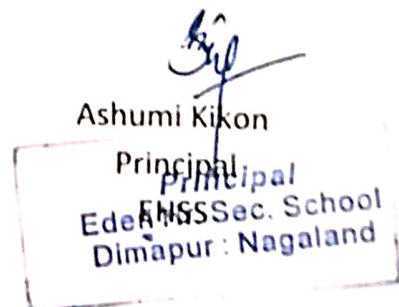 Ashumi Kikon
Principal
Principal
EHSS
Eden Hr. Sec. School
Dimapur : Nagaland